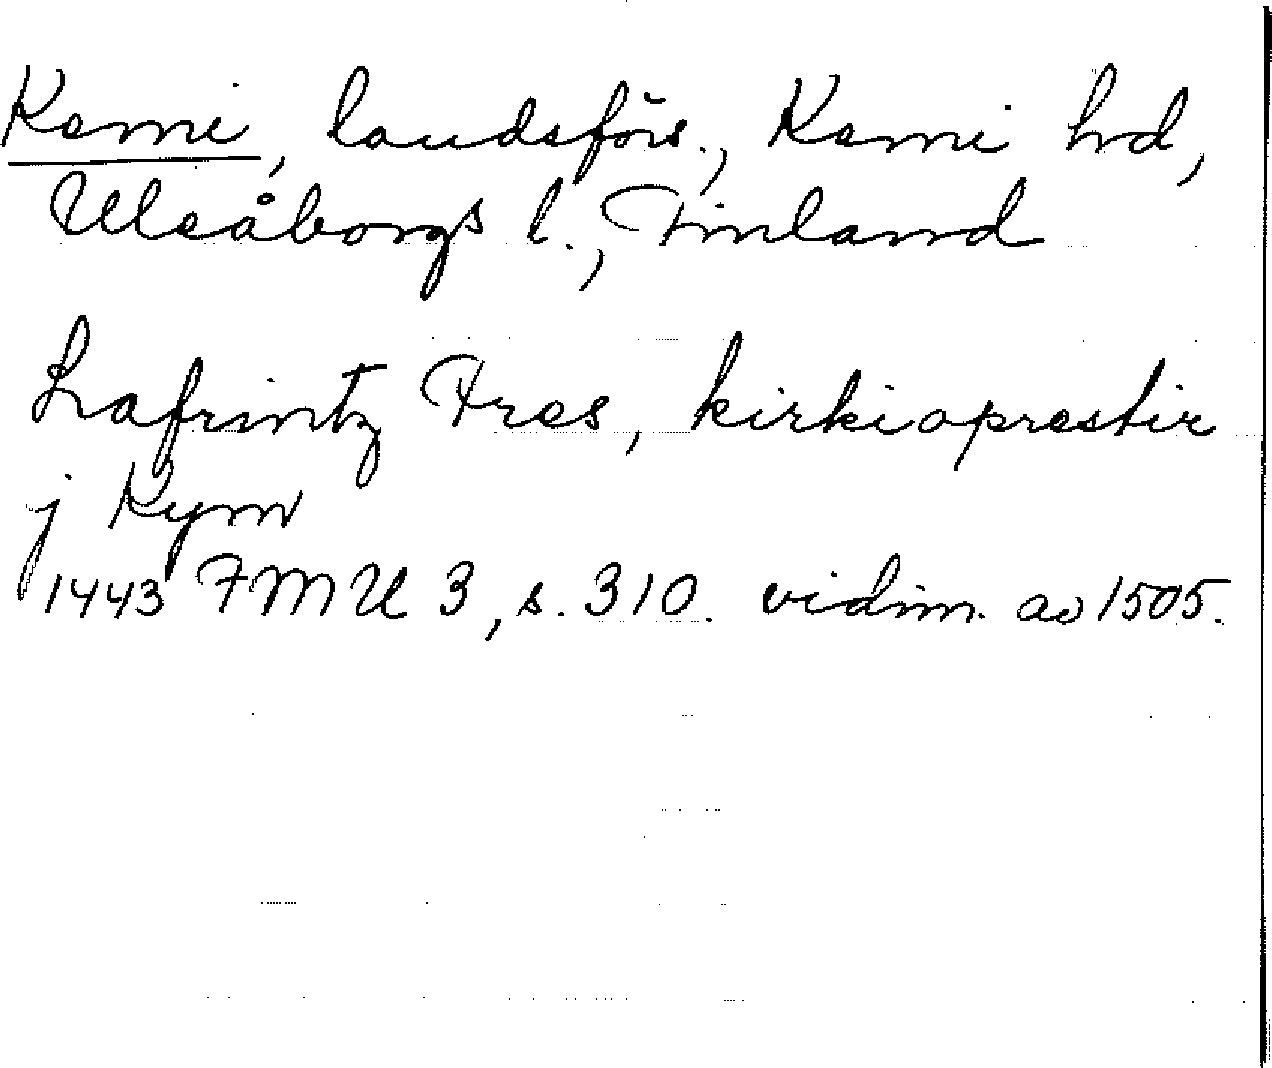 Kemi, landsförs., Kemi hd,
Uleåborgs l., Finland
Lafrintz Fres, kirkioprestir
j Kym
1443 FMU 3, s. 310. vidim. av 1505.